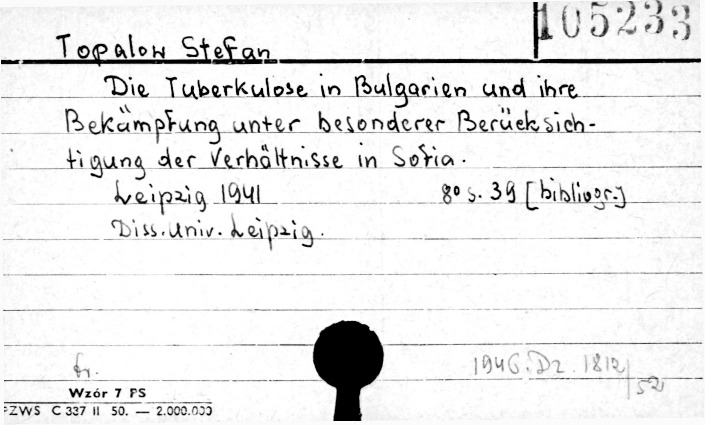 105233
Topalow Stefan
Die Tuberkulose in Bulgarien und ihre
Bekämpfung unter besonderer Berücksich-
tigung der Verhältnisse in Sofia.
Leipzig 1941 8° s. 39 [bibliogr.]
Diss. Univ. Leipzig.
fr.
1946. Dz. 1812/52
Wzór 7 PS
PZWS C 337 II 50. — 2.000.000